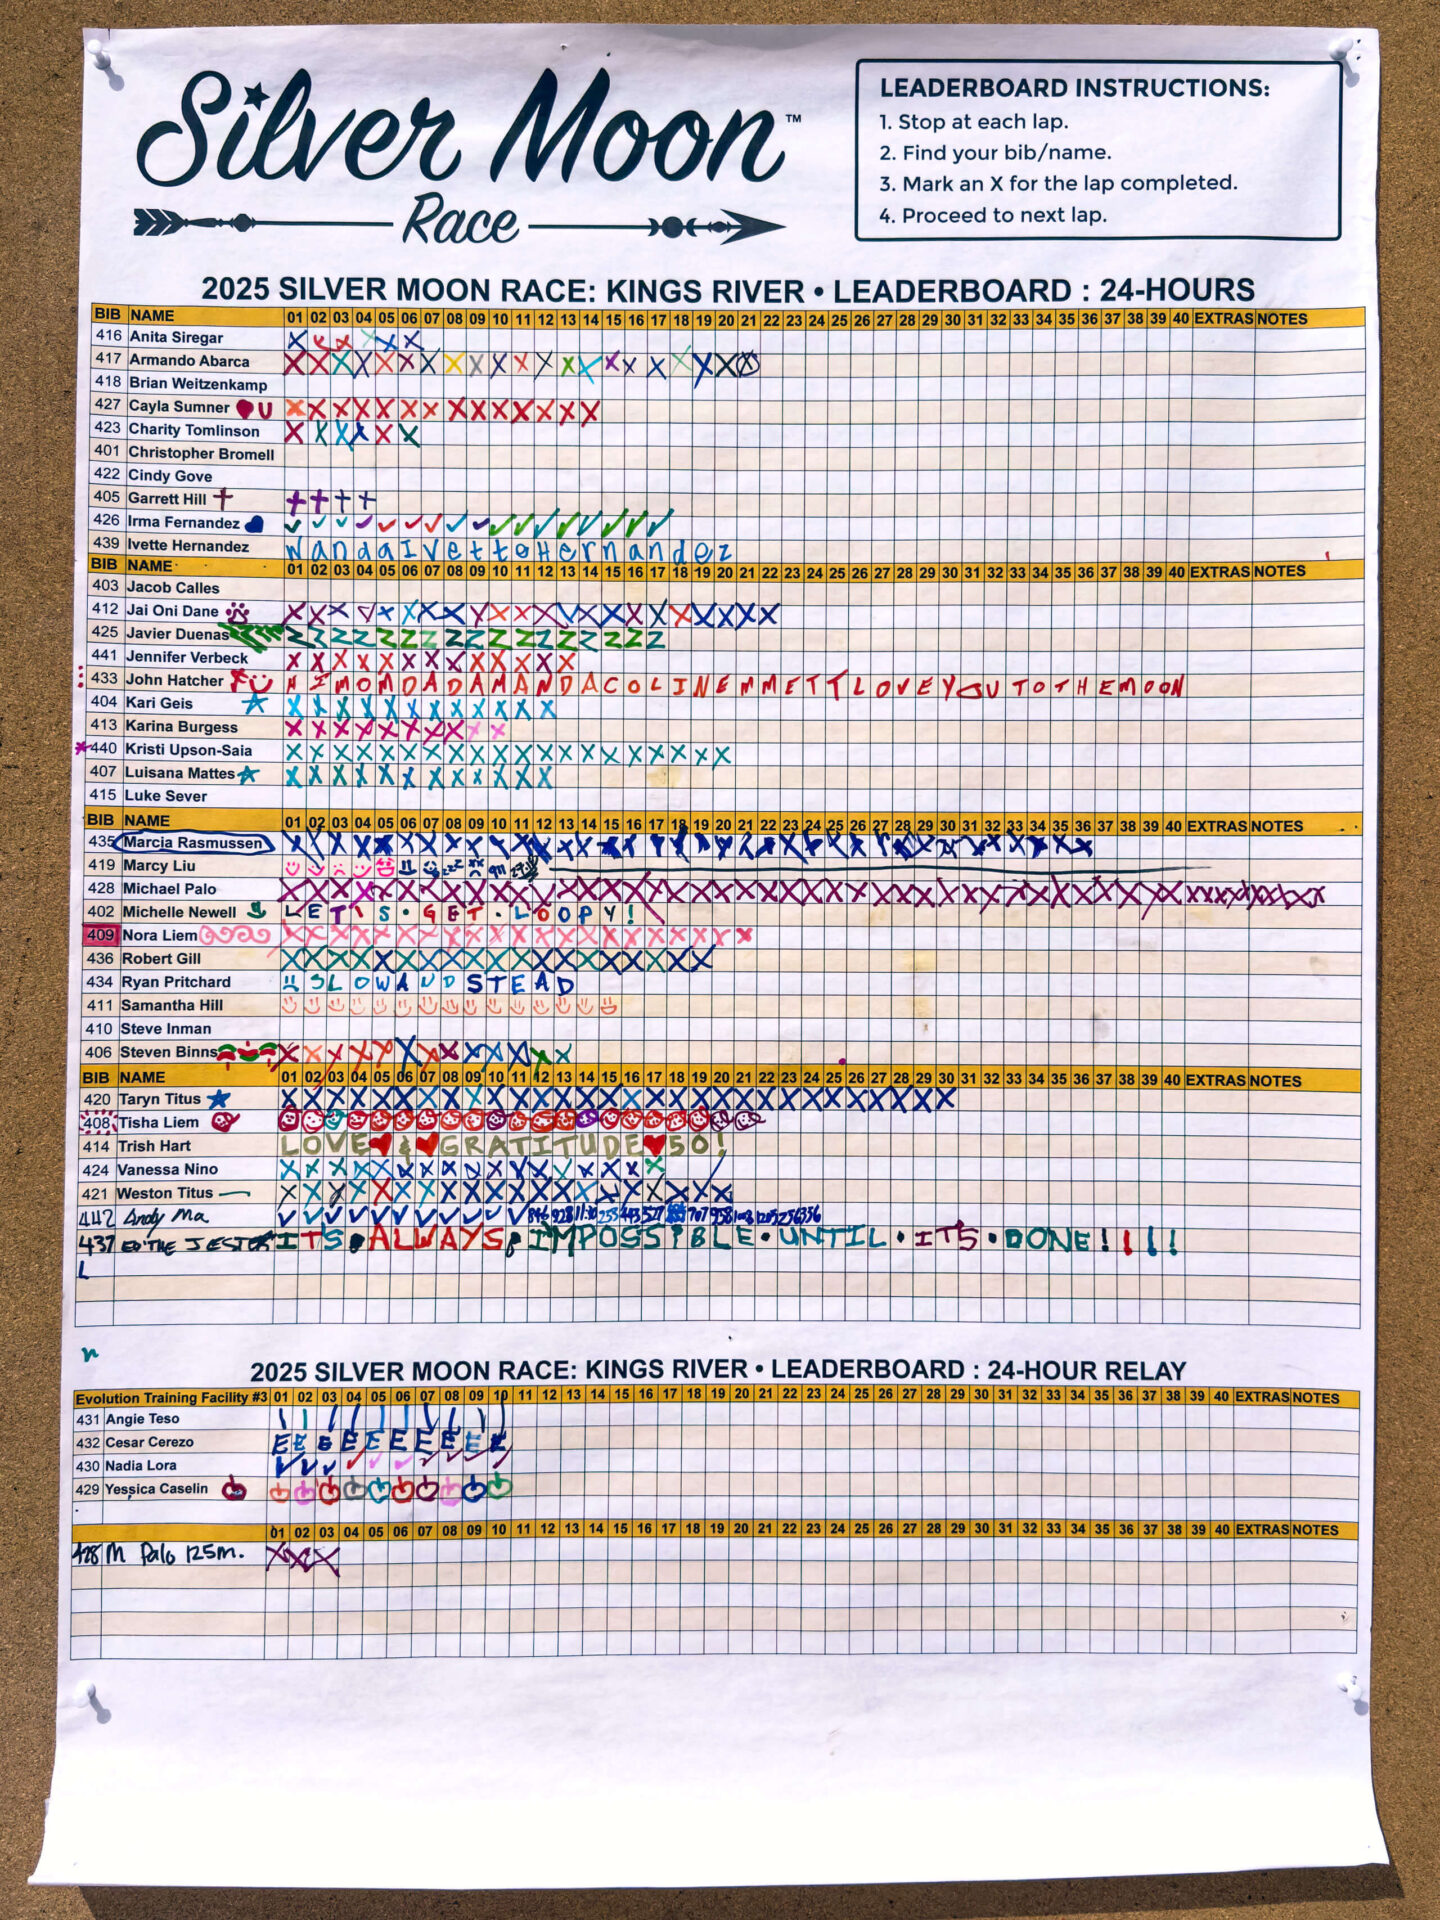 Silver Moon™
Race
LEADERBOARD INSTRUCTIONS:
1. Stop at each lap.
2. Find your bib/name.
3. Mark an X for the lap completed.
4. Proceed to next lap.
2025 SILVER MOON RACE: KINGS RIVER • LEADERBOARD : 24-HOURS
BIB NAME 01 02 03 04 05 06 07 08 09 10 11 12 13 14 15 16 17 18 19 20 21 22 23 24 25 26 27 28 29 30 31 32 33 34 35 36 37 38 39 40 EXTRAS NOTES
416 Anita Siregar X X X X X X
417 Armando Abarca X X X X X X X X X X X X X X X X X X X X X
418 Brian Weitzenkamp
427 Cayla Sumner U X X X X X X X X X X X X X X
423 Charity Tomlinson X X X X X X
401 Christopher Bromell
422 Cindy Gove
405 Garrett Hill
426 Irma Fernandez
439 Ivette Hernandez W a n d a I V e t t e H e r n a n d e z
BIB NAME 01 02 03 04 05 06 07 08 09 10 11 12 13 14 15 16 17 18 19 20 21 22 23 24 25 26 27 28 29 30 31 32 33 34 35 36 37 38 39 40 EXTRAS NOTES
403 Jacob Calles
412 Jai Oni Dane X X X X X X X X X X X X X X X X X X X X X X
425 Javier Duenas Z Z Z Z Z Z Z Z Z Z Z Z Z Z Z Z Z
441 Jennifer Verbeck X X X X X X X X X X X X X
433 John Hatcher H I M O M D A D A M A N D A C O L I N E M M E T T L O V E Y O U T O T H E M O O N
404 Kari Geis X X X X X X X X X X X X
413 Karina Burgess X X X X X X X X X X
440 Kristi Upson-Saia X X X X X X X X X X X X X X X X X X X X
407 Luisana Mattes X X X X X X X X X X X X
415 Luke Sever
BIB NAME 01 02 03 04 05 06 07 08 09 10 11 12 13 14 15 16 17 18 19 20 21 22 23 24 25 26 27 28 29 30 31 32 33 34 35 36 37 38 39 40 EXTRAS NOTES
435 Marcia Rasmussen X X X X X X X X X X X X X X X X X X X X X X X X X X X X X X X X X X X X
419 Marcy Liu zzz 911
428 Michael Palo X X X X X X X X X X X X X X X X X X X X X X X X X X X X X X X X X X X X X X X X
402 Michelle Newell L E T ' S • G E T • L O O P Y !
409 Nora Liem X X X X X X X X X X X X X X X X X X X X X
436 Robert Gill X X X X X X X X X X X X X X X X X X X
434 Ryan Pritchard S L O W A N D S T E A D
411 Samantha Hill
410 Steve Inman
406 Steven Binns X X X X X X X X X X X X X
BIB NAME 01 02 03 04 05 06 07 08 09 10 11 12 13 14 15 16 17 18 19 20 21 22 23 24 25 26 27 28 29 30 31 32 33 34 35 36 37 38 39 40 EXTRAS NOTES
420 Taryn Titus X X X X X X X X X X X X X X X X X X X X X X X X X X X X X
408 Tisha Liem
414 Trish Hart L O V E ♥ & ♥ G R A T I T U D E ♥ 5 0 !
424 Vanessa Nino X X X X X X X X X X X X X X X X X
421 Weston Titus X X X X X X X X X X X X X X X X X X X X
442 Andy Ma 846 928 11:10 253 443 527 707 958
437 ED THE JESTER I T S • A L W A Y S • I M P O S S I B L E • U N T I L • I T S • D O N E ! ! ! !
L
2025 SILVER MOON RACE: KINGS RIVER • LEADERBOARD : 24-HOUR RELAY
Evolution Training Facility #3 01 02 03 04 05 06 07 08 09 10 11 12 13 14 15 16 17 18 19 20 21 22 23 24 25 26 27 28 29 30 31 32 33 34 35 36 37 38 39 40 EXTRAS NOTES
431 Angie Teso
432 Cesar Cerezo E E E E E E E E E E
430 Nadia Lora
429 Yessica Caselin
01 02 03 04 05 06 07 08 09 10 11 12 13 14 15 16 17 18 19 20 21 22 23 24 25 26 27 28 29 30 31 32 33 34 35 36 37 38 39 40 EXTRAS NOTES
428 M Palo 125m. X X X